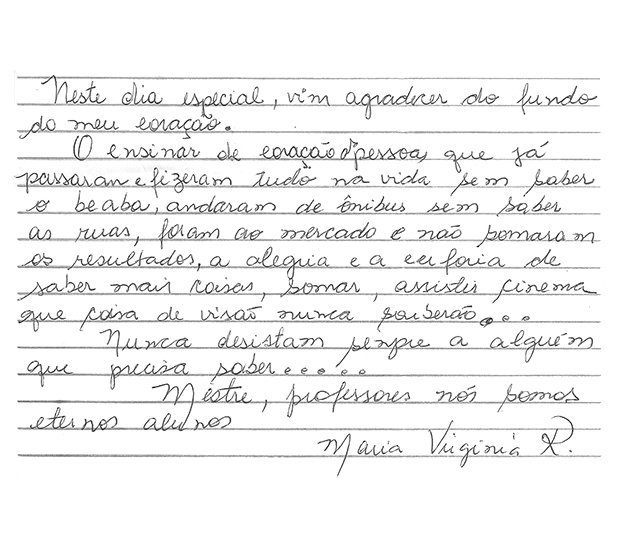 Neste dia especial, vim agradecer do fundo
do meu coração.
O ensinar de coração à pessoas, que já
passaram e fizeram tudo na vida sem saber
o beaba, andaram de ônibus sem saber
as ruas, foram ao mercado e não somaram
os resultados, a alegria e a euforia de
saber mais coisas, somar, assistir cinema
que coisa de visão nunca souberão...
Nunca desistam sempre a alguém
que precisa saber.....
Méstre, professores nós somos
eternos alunos
Maria Virginia R.